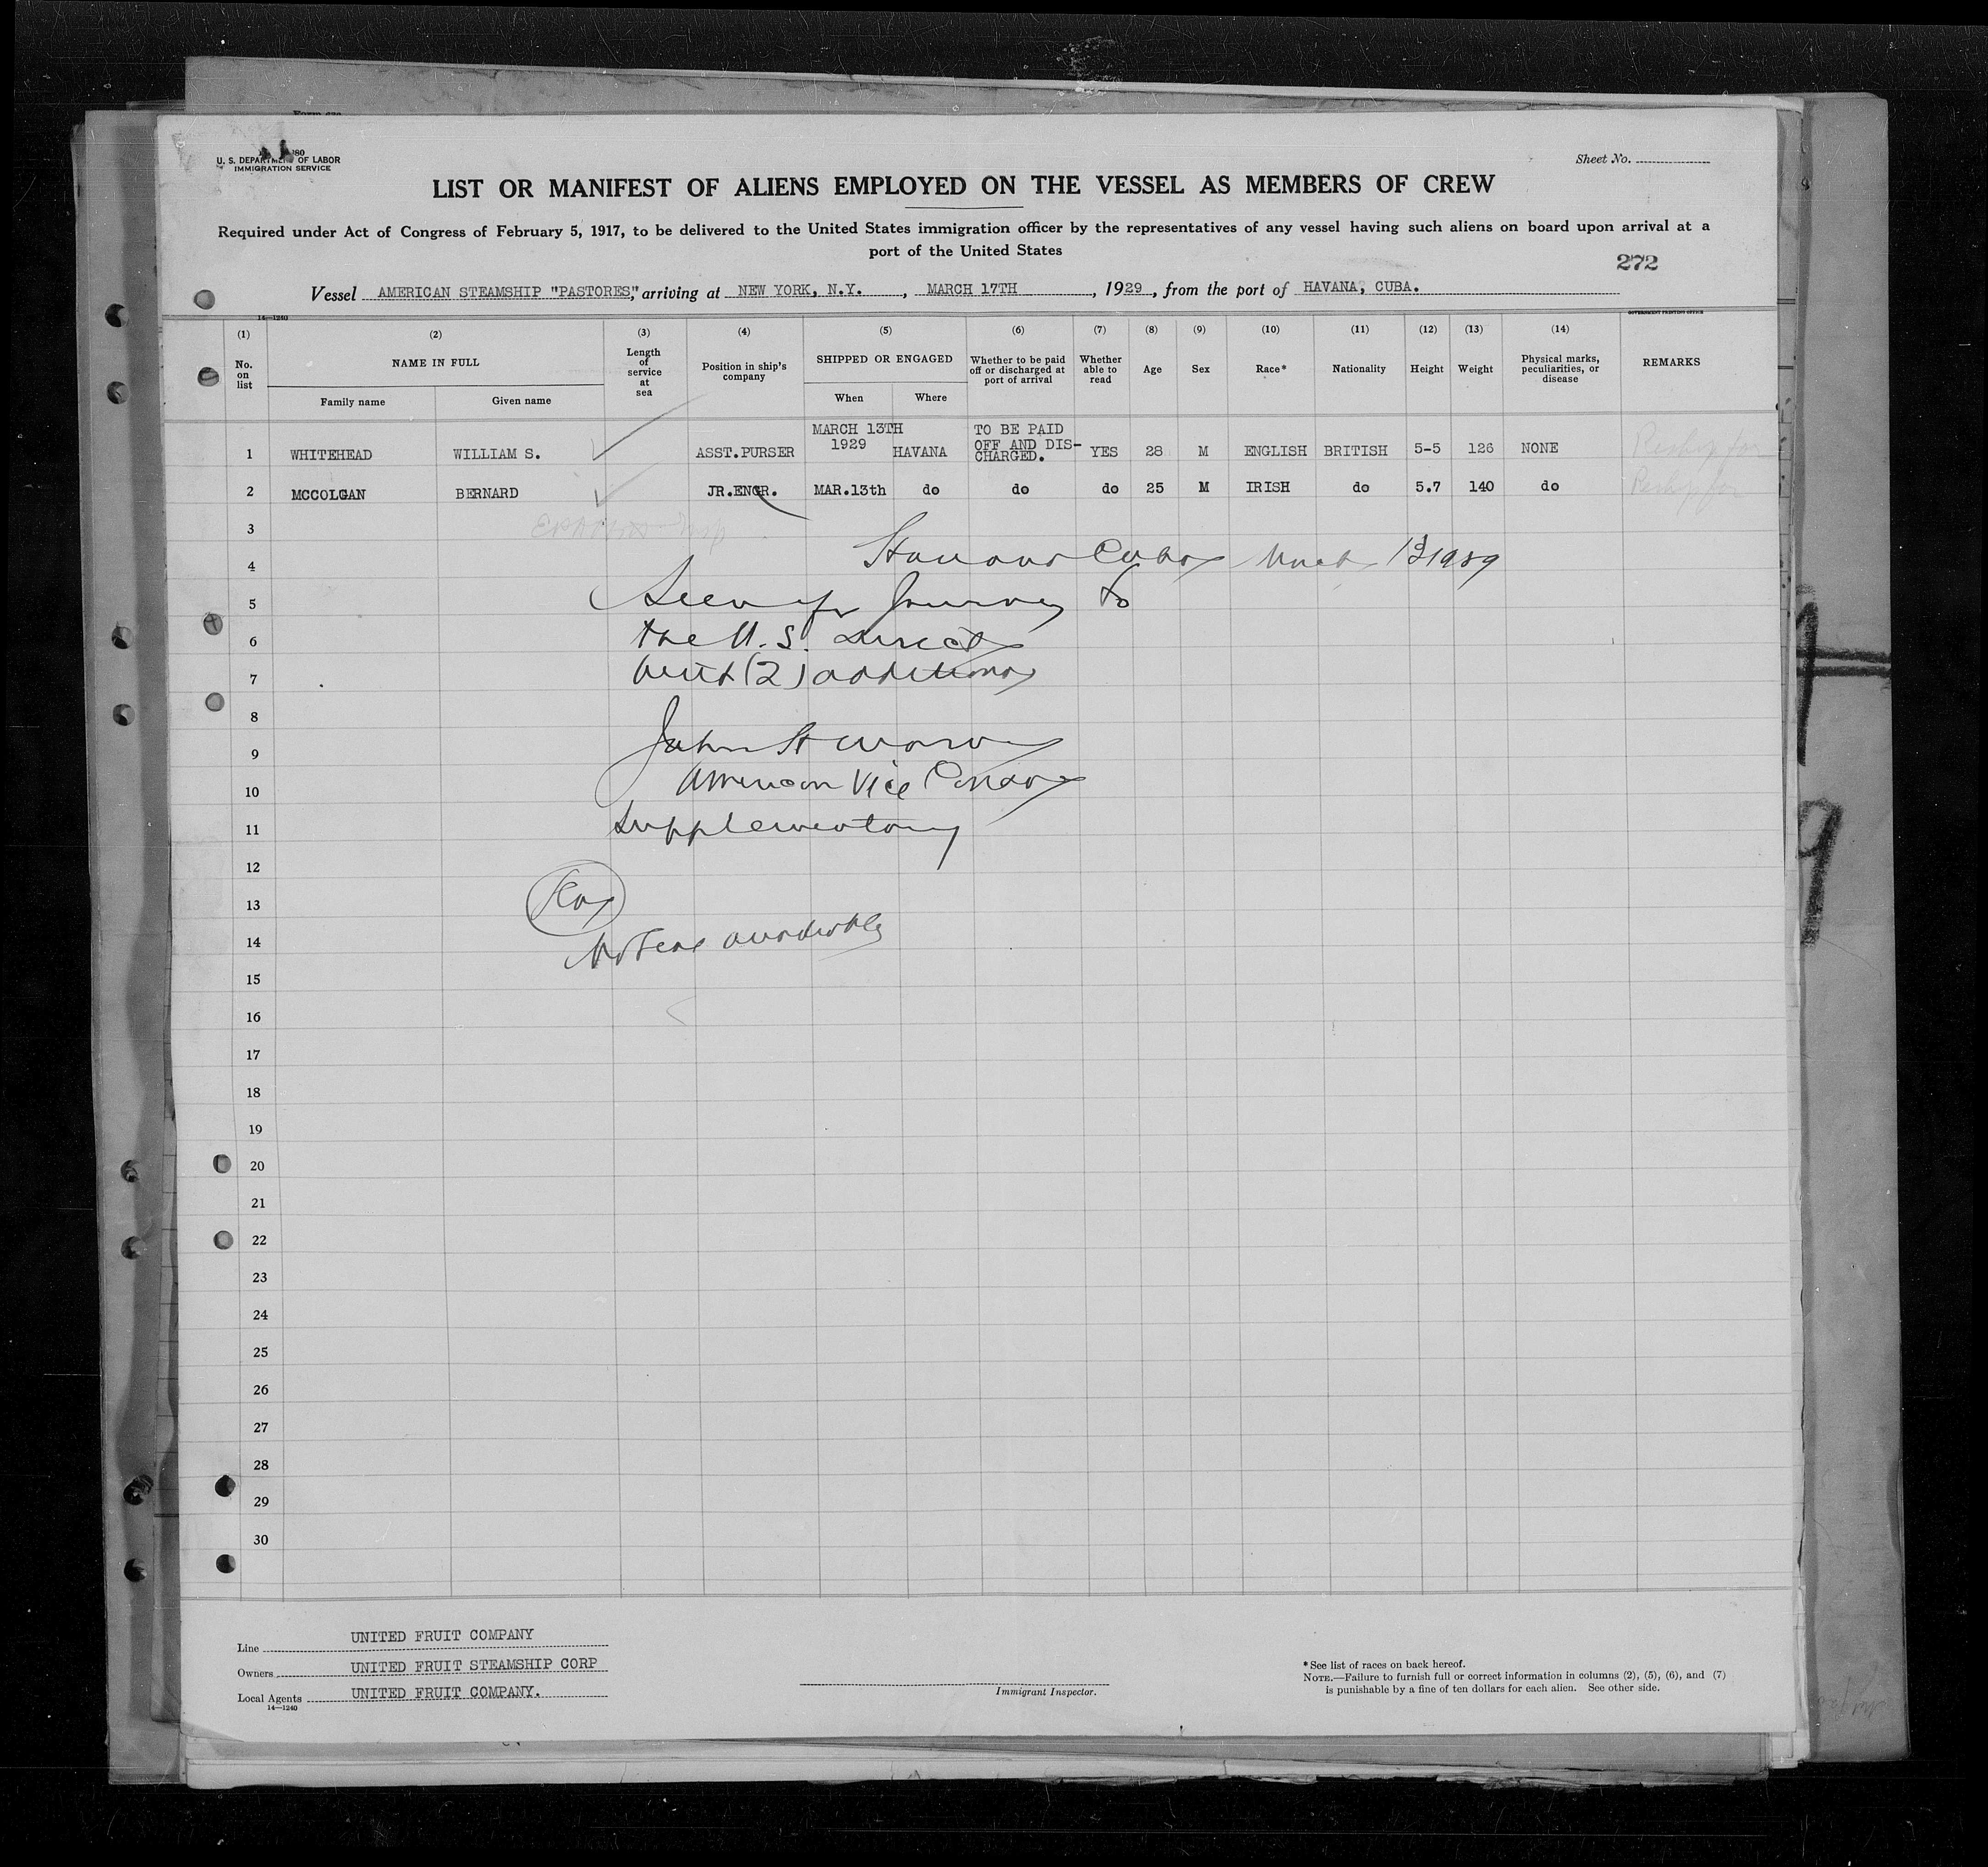 U. S. DEPARTMENT OF LABOR
IMMIGRATION SERVICE
Sheet No.
LIST OR MANIFEST OF ALIENS EMPLOYED ON THE VESSEL AS MEMBERS OF CREW
Required under Act of Congress of February 5, 1917, to be delivered to the United States immigration officer by the representatives of any vessel having such aliens on board upon arrival at a
port of the United States
272
Vessel AMERICAN STEAMSHIP "PASTORES", arriving at NEW YORK, N.Y. , MARCH 17TH , 1929 , from the port of HAVANA, CUBA.
14—1240 GOVERNMENT PRINTING OFFICE
(1) (2) (3) (4) (5) (6) (7) (8) (9) (10) (11) (12) (13) (14)
No. on list NAME IN FULL Family name Given name Length of service at sea Position in ship's company SHIPPED OR ENGAGED When Where Whether to be paid off or discharged at port of arrival Whether able to read Age Sex Race* Nationality Height Weight Physical marks, peculiarities, or disease REMARKS
1 WHITEHEAD WILLIAM S. ASST.PURSER MARCH 13TH 1929 HAVANA TO BE PAID OFF AND DIS-CHARGED. YES 28 M ENGLISH BRITISH 5-5 126 NONE
2 MCCOLGAN BERNARD JR.ENGR. MAR.13th do do do 25 M IRISH do 5.7 140 do
3
Havana Cuba March 13 1929
4
5 Seen for Journey to
6 the U.S. direct
7 with (2) additions
8
9 John H
10 American Vice Consul
11 Supplementary
12
13
14
15
16
17
18
19
20
21
22
23
24
25
26
27
28
29
30
Line UNITED FRUIT COMPANY
Owners UNITED FRUIT STEAMSHIP CORP
Local Agents UNITED FRUIT COMPANY.
14—1240
Immigrant Inspector.
* See list of races on back hereof.
NOTE.—Failure to furnish full or correct information in columns (2), (5), (6), and (7)
is punishable by a fine of ten dollars for each alien. See other side.